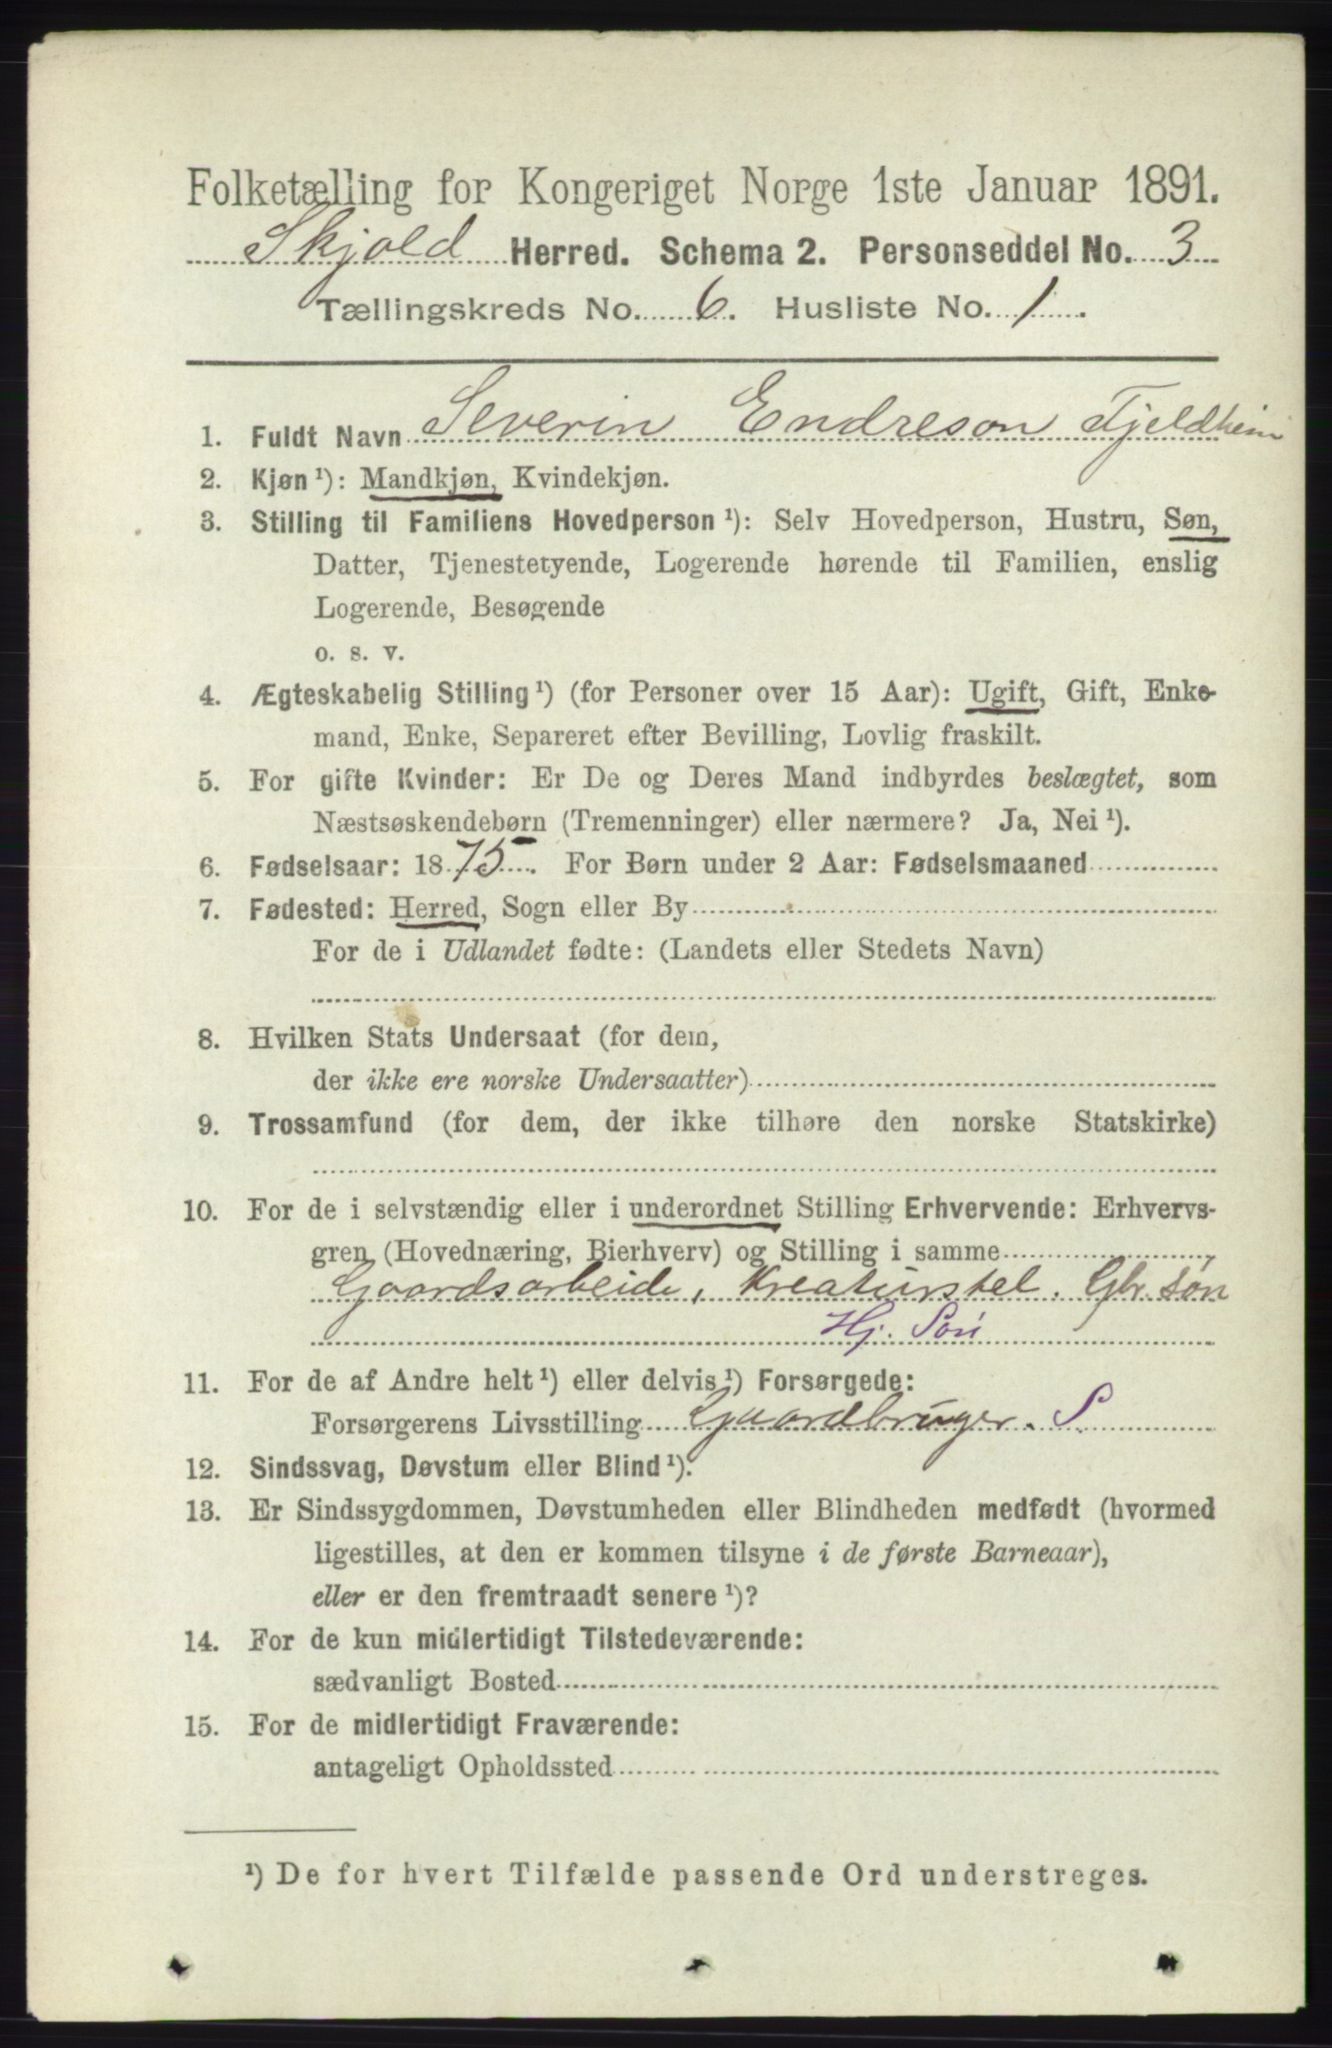 Folketælling for Kongeriget Norge 1ste Januar 1891.
Skjold Herred. Schema 2. Personseddel No. 3
Tællingskreds No. 6. Husliste No. 1.
1. Fuldt Navn Severin Endreson Fjeldheim
2. Kjøn ¹): Mandkjøn, Kvindekjøn.
3. Stilling til Familiens Hovedperson ¹): Selv Hovedperson, Hustru, Søn,
Datter, Tjenestetyende, Logerende hørende til Familien, enslig
Logerende, Besøgende
o. s. v.
4. Ægteskabelig Stilling ¹) (for Personer over 15 Aar): Ugift, Gift, Enke-
mand, Enke, Separeret efter Bevilling, Lovlig fraskilt.
5. For gifte Kvinder: Er De og Deres Mand indbyrdes beslægtet, som
Næstsøskendebørn (Tremenninger) eller nærmere? Ja, Nei ¹).
6. Fødselsaar: 1875. For Børn under 2 Aar: Fødselsmaaned
7. Fødested: Herred, Sogn eller By
For de i Udlandet fødte: (Landets eller Stedets Navn)
8. Hvilken Stats Undersaat (for dem,
der ikke ere norske Undersaatter)
9. Trossamfund (for dem, der ikke tilhøre den norske Statskirke)
10. For de i selvstændig eller i underordnet Stilling Erhvervende: Erhvervs-
gren (Hovednæring, Bierhverv) og Stilling i samme
Gaardsarbeide, Kreaturstel. Gbr. søn
Hj. Søn
11. For de af Andre helt ¹) eller delvis ¹) Forsørgede:
Forsørgerens Livsstilling Gaardbruger. S
12. Sindssvag, Døvstum eller Blind ¹).
13. Er Sindssygdommen, Døvstumheden eller Blindheden medfødt (hvormed
ligestilles, at den er kommen tilsyne i de første Barneaar),
eller er den fremtraadt senere ¹)?
14. For de kun midlertidigt Tilstedeværende:
sædvanligt Bosted
15. For de midlertidigt Fraværende:
antageligt Opholdssted
¹) De for hvert Tilfælde passende Ord understreges.